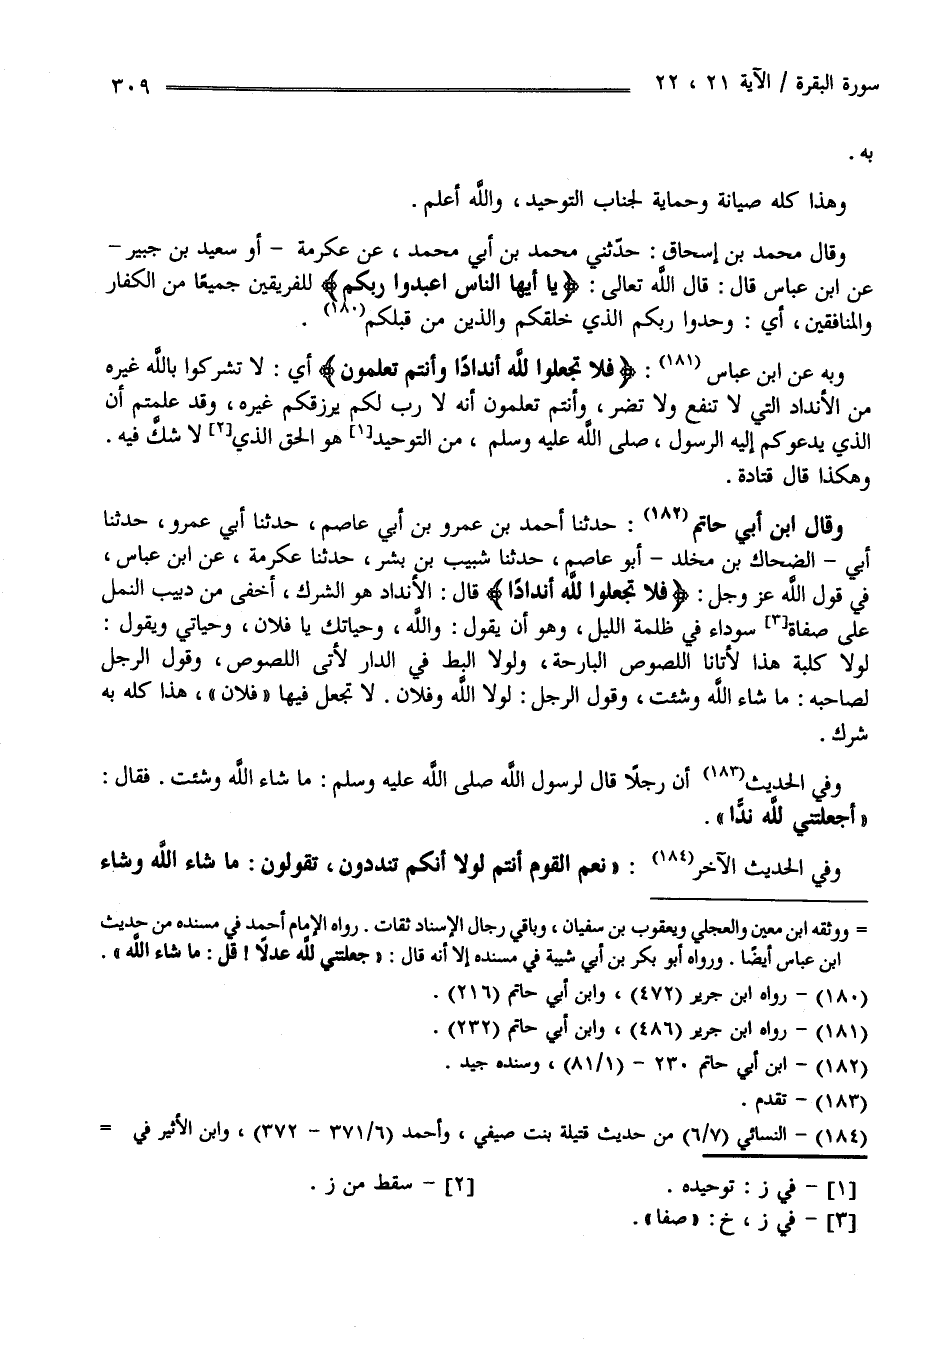 سورة البقرة / الآية ٢١ ، ٢٢ ٣٠٩
به .
وهذا كله صيانة وحماية لجناب التوحيد ، واللَّه أعلم .
وقال محمد بن إسحاق : حدّثني محمد بن أبي محمد ، عن عكرمة – أو سعيد بن جبير –
عن ابن عباس قال : قال اللَّه تعالى : ﴿يا أيها الناس اعبدوا ربكم﴾ للفريقين جميعًا من الكفار
والمنافقين ، أي : وحدوا ربكم الذي خلقكم والذين من قبلكم(١٨٠) .
وبه عن ابن عباس (١٨١) : ﴿فلا تجعلوا للَّه أندادًا وأنتم تعلمون﴾ أي : لا تشركوا باللَّه غيره
من الأنداد التي لا تنفع ولا تضر ، وأنتم تعلمون أنه لا رب لكم يرزقكم غيره ، وقد علمتم أن
الذي يدعوكم إليه الرسول ، صلى اللَّه عليه وسلم ، من التوحيد[١] هو الحق الذي[٢] لا شكَّ فيه .
وهكذا قال قتادة .
وقال ابن أبي حاتم (١٨٢) : حدثنا أحمد بن عمرو بن أبي عاصم ، حدثنا أبي عمرو ، حدثنا
أبي – الضحاك بن مخلد – أبو عاصم ، حدثنا شبيب بن بشر ، حدثنا عكرمة ، عن ابن عباس ،
في قول اللَّه عز وجل : ﴿فلا تجعلوا للَّه أندادًا﴾ قال : الأنداد هو الشرك ، أخفى من دبيب النمل
على صفاة[٣] سوداء في ظلمة الليل ، وهو أن يقول : واللَّه ، وحياتك يا فلان ، وحياتي ويقول :
لولا كلبة هذا لأتانا اللصوص البارحة ، ولولا البط في الدار لأتى اللصوص ، وقول الرجل
لصاحبه : ما شاء اللَّه وشئت ، وقول الرجل : لولا اللَّه وفلان . لا تجعل فيها «فلان» ، هذا كله به
شرك .
وفي الحديث(١٨٣) أن رجلًا قال لرسول اللَّه صلى اللَّه عليه وسلم : ما شاء اللَّه وشئت . فقال :
«أجعلتني للَّه ندًّا» .
وفي الحديث الآخر(١٨٤) : «نعم القوم أنتم لولا أنكم تنددون ، تقولون : ما شاء اللَّه وشاء
= ووثقه ابن معين والعجلي ويعقوب بن سفيان ، وباقي رجال الإسناد ثقات . رواه الإمام أحمد في مسنده من حديث
ابن عباس أيضًا . ورواه أبو بكر بن أبي شيبة في مسنده إلا أنه قال : «جعلتني للَّه عدلًا ! قل : ما شاء اللَّه» .
(١٨٠) – رواه ابن جرير (٤٧٢) ، وابن أبي حاتم (٢١٦) .
(١٨١) – رواه ابن جرير (٤٨٦) ، وابن أبي حاتم (٢٣٢) .
(١٨٢) – ابن أبي حاتم ٢٣٠ – (٨١/١) ، وسنده جيد .
(١٨٣) – تقدم .
(١٨٤) – النسائي (٦/٧) من حديث قتيلة بنت صيفي ، وأحمد (٣٧١/٦ – ٣٧٢) ، وابن الأثير في =
[١] – في ز : توحيده . [٢] – سقط من ز .
[٣] – في ز ، خ : «صفا» .